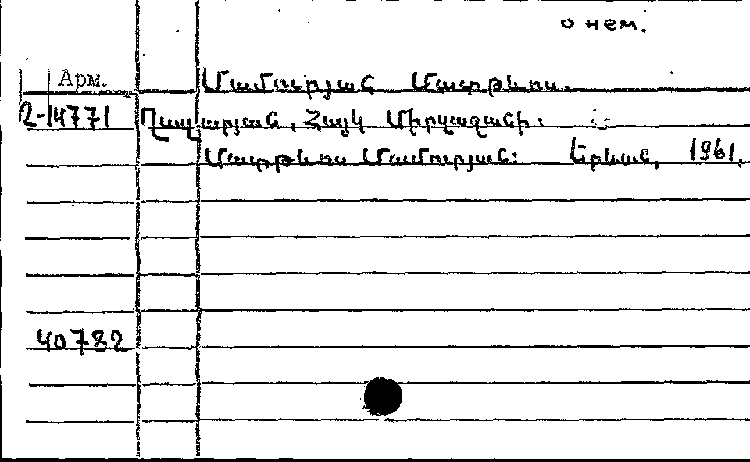 о нем.
Арм. Մամուրյան Մատթևոս.
2-14771 Ղազարյան, Հայկ Միրկազանի.
Մատթևոս Մամուրյան: Երևան, 1961.
40782